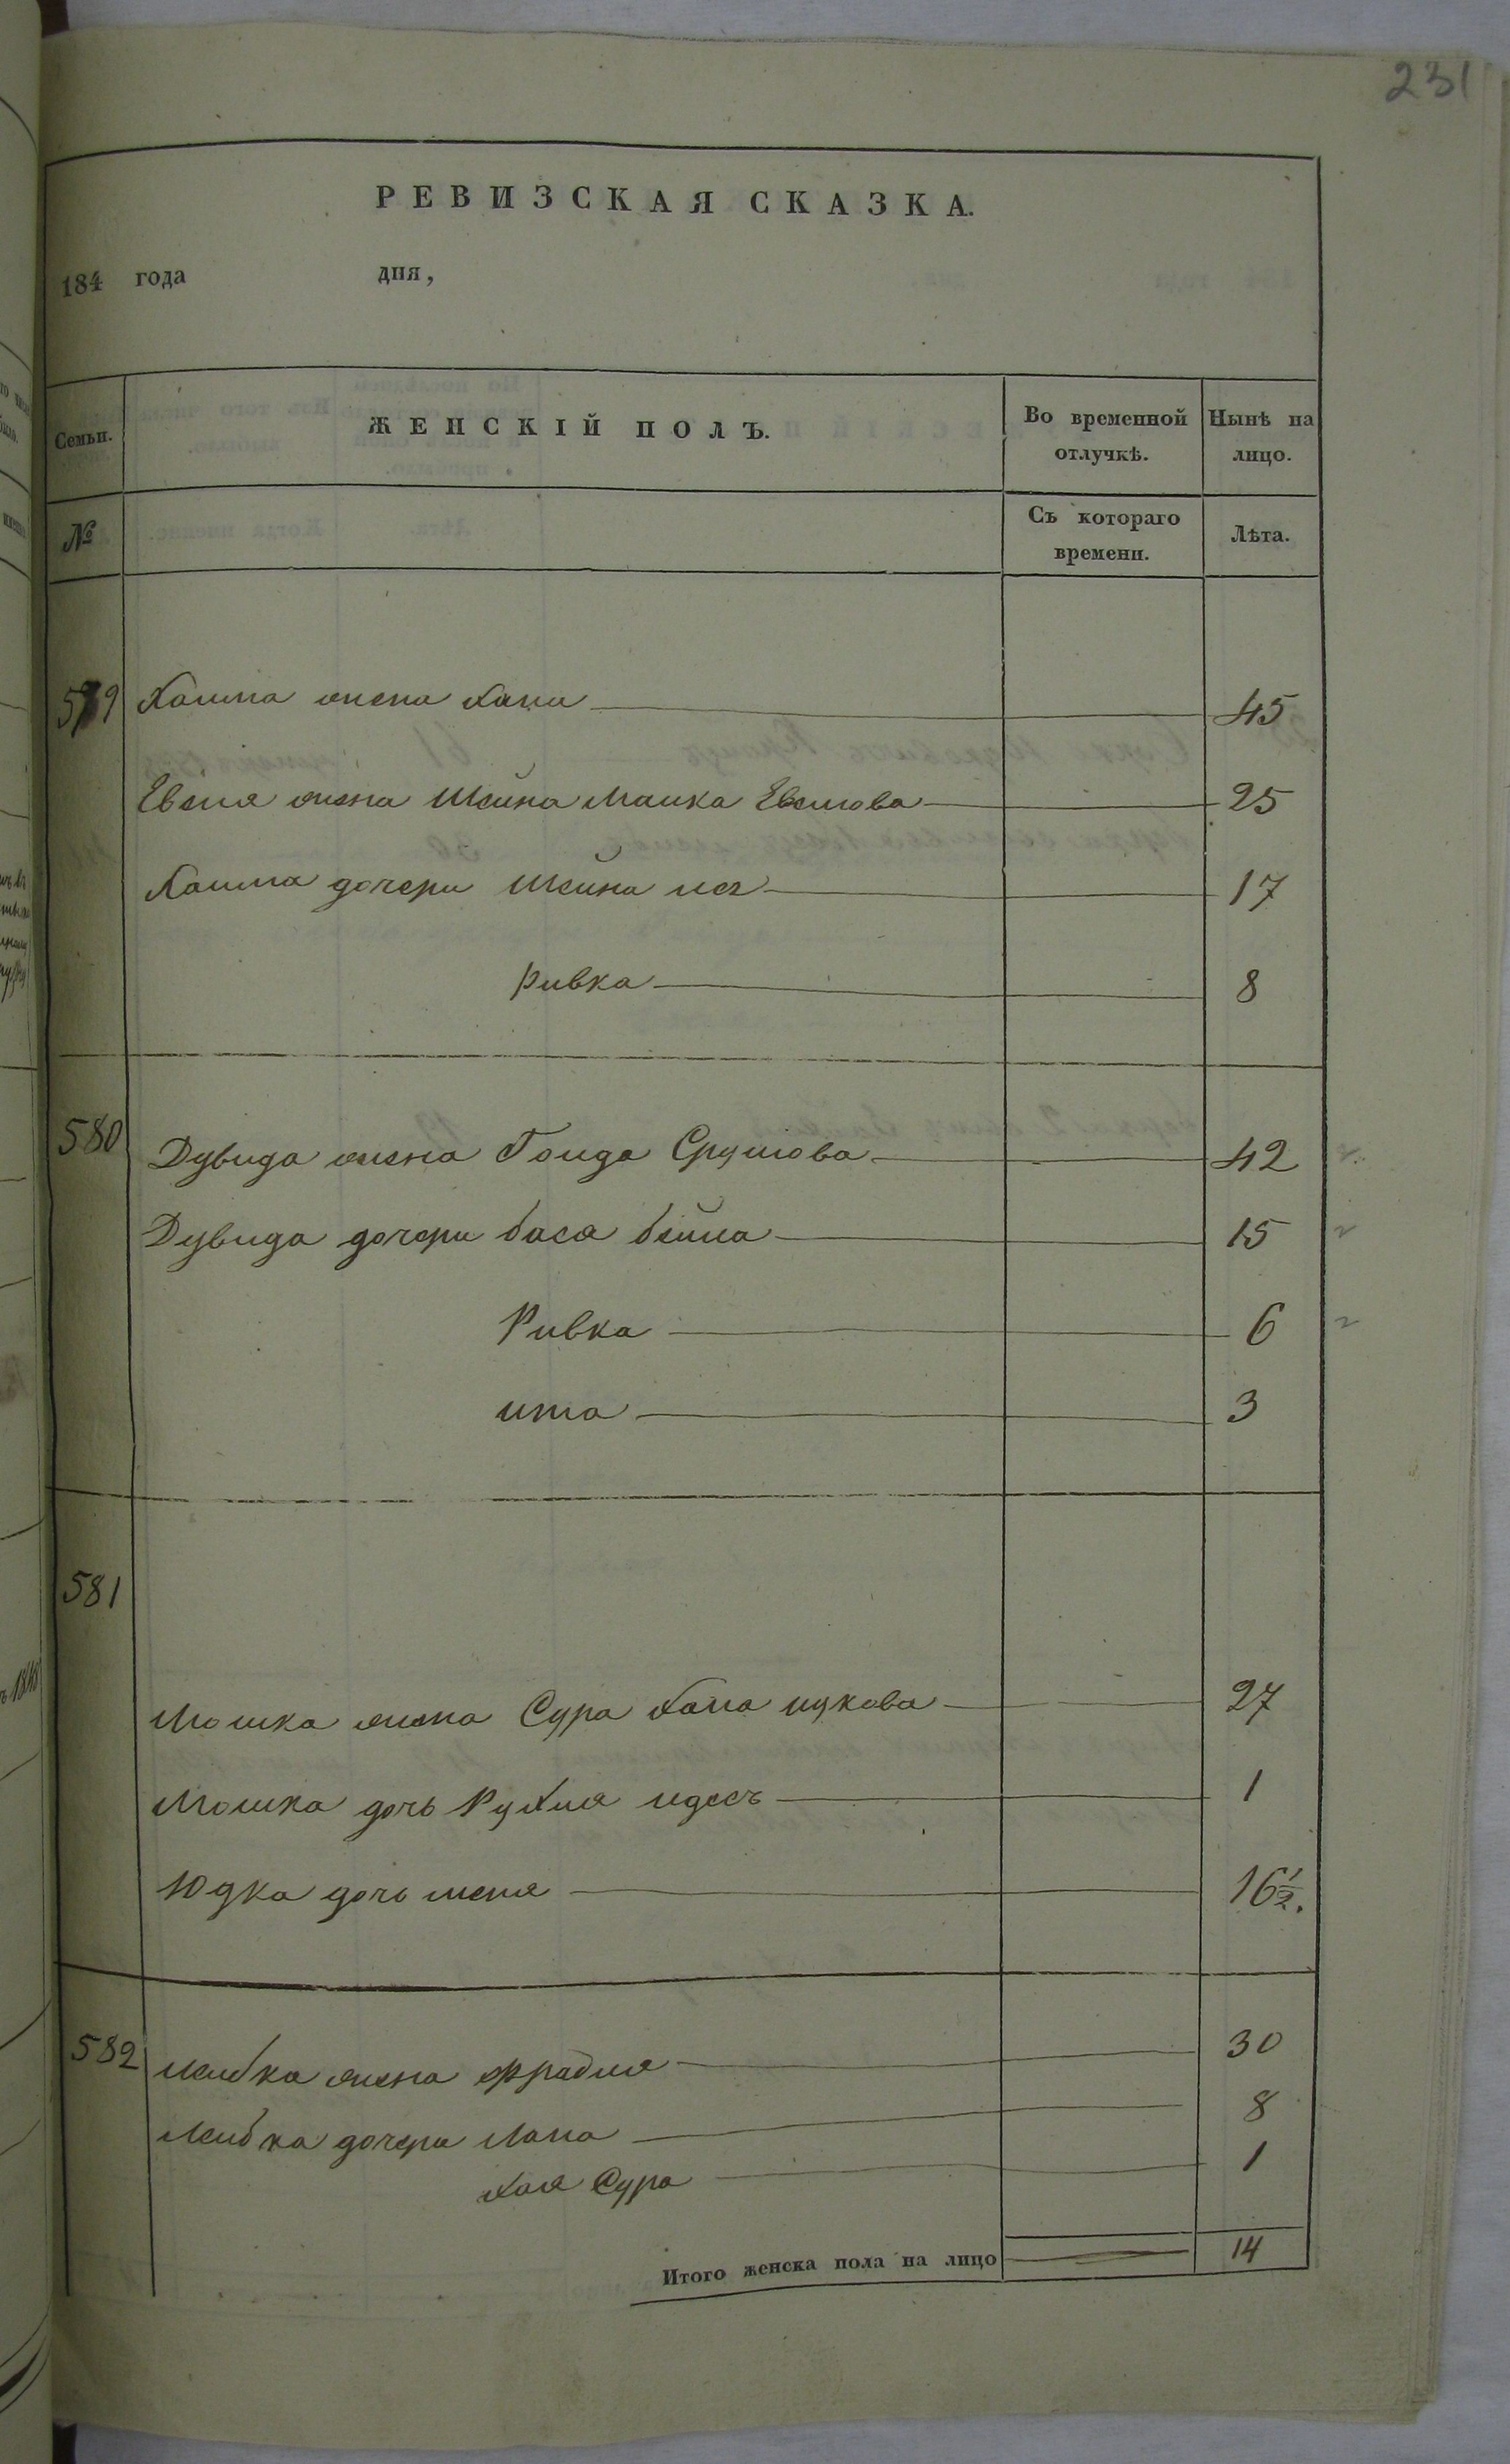 231
РЕВИЗСКАЯ СКАЗКА.
184 года дня,
Семьи. ЖЕНСКІЙ ПОЛЪ. Во временной отлучкѣ. Нынѣ на лицо.
№ Съ котораго времени. Лѣта.
579 Хаима жена Хана 45
Евеля жена Шейна Малка 25
Хаима дочери Шейна 17
Ривка 8
580 Дувида жена Голда Срулова 42
Дувида дочери бася бейла 15
Ривка 6
ита 3
581
Мошка жена Сура Хана ицкова 27
Мошка дочь Рухля идесъ 1
Юдка дочь 16 1/2.
582 лейбка жена фрадля 30
лейбка дочери 8
хая Сура 1
Итого женска пола на лицо 14